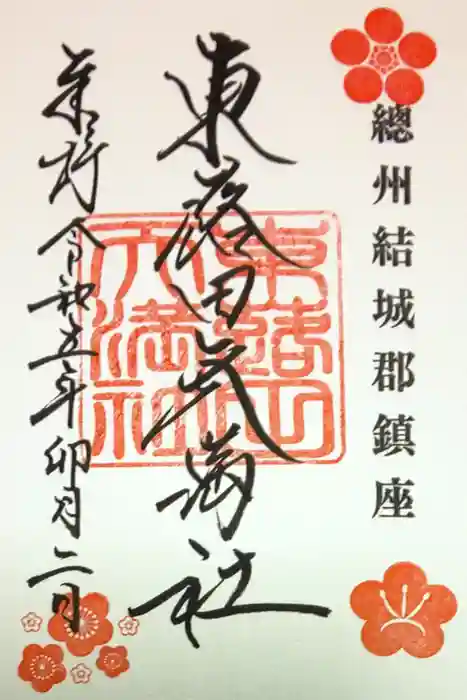 總州結城郡鎮座
東蕗田天満社
奉拝 令和五年卯月二日
東蕗田
天満社